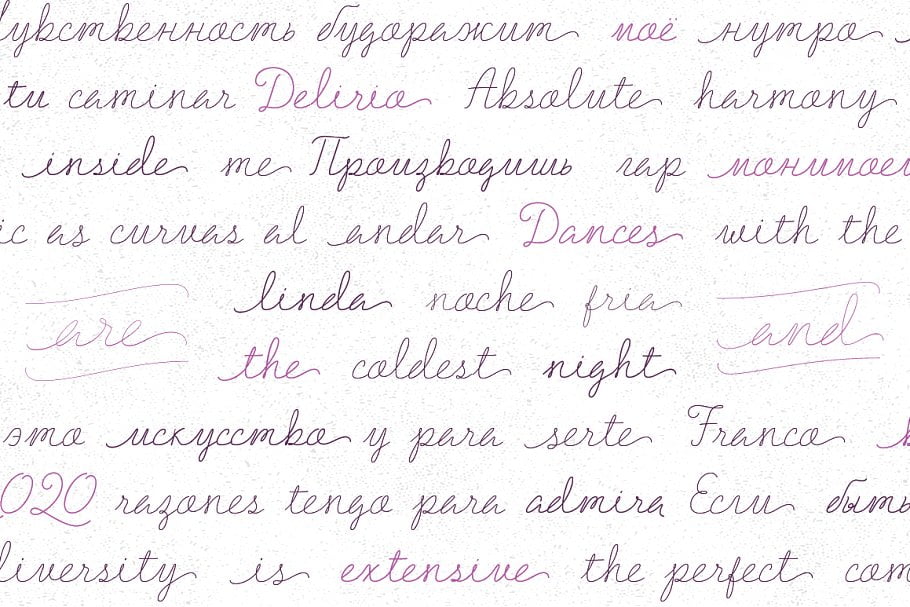 увственность будоражит моё нутро
tu caminar Delirio Absolute harmony
inside me Производишь гар монипоеи
ic as curvas al andar Dances with the
linda noche fria
are and
the coldest night
это искусство y para serte Franco
2020 razones tengo para admira Если быть
diversity is extensive the perfect com